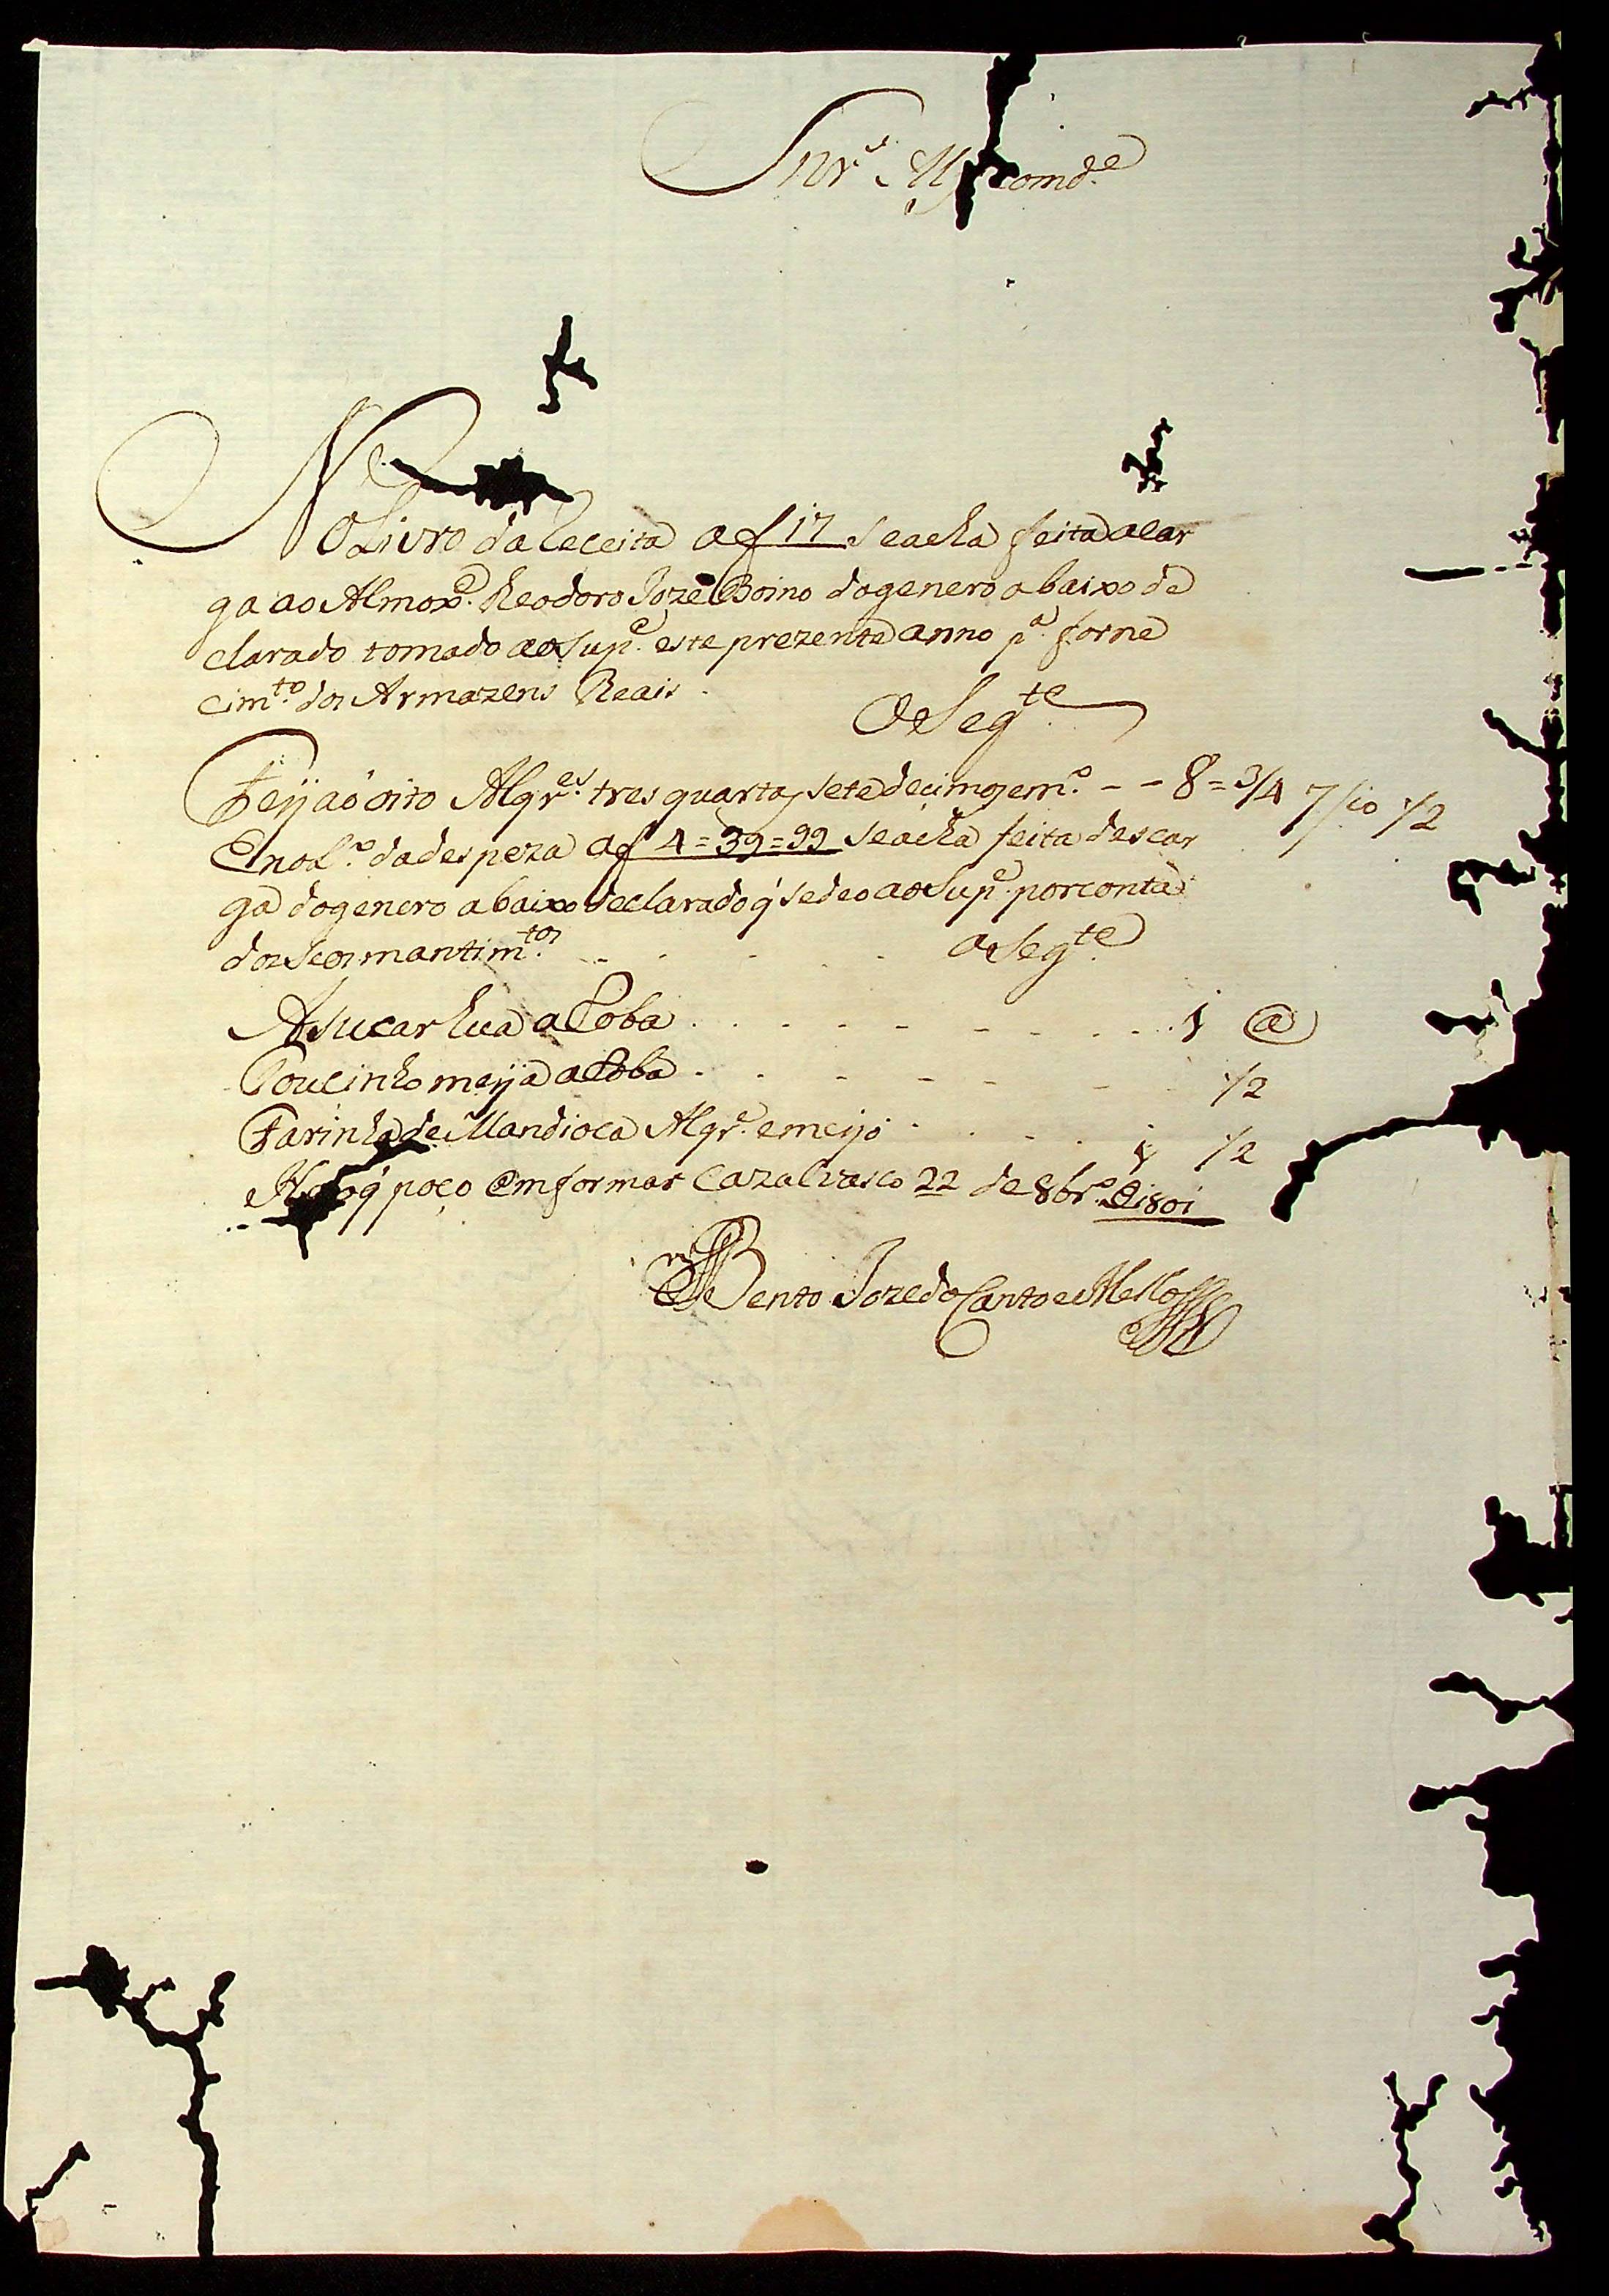 Snr. M. Comde.
No Livro da Receita a f 17 Se acha feita a Car
ga ao Almoxe. Theodoro Joze Boino do genero abaixo de
clarado tomado ao Supe. este prezente anno pa. forne
cimto. dos Armazens Reais.
O Segte.
Feijaõ oito Alqres. tres quartas, sete decimos em.o - - 8 = 3/4 7/10 1/2
E no L.o da despeza a f 4 = 39 = 99 Se acha feita descar
ga do genero abaixo declarado q' Se deo ao Supe. por conta
dos Seos mantimtos. - . . . . a Segte.
Asucar hua aRoba . . . - - - - - . . . 1 @
Toucinho meija aRoba . . - - - - 1/2
Farinha de Mandioca Alqre. e meijo . . . . . 1 1/2
He o q' poço emformar Cazalvasco 22 de 8bro. de 1801
Bento Joze do Canto e Mello